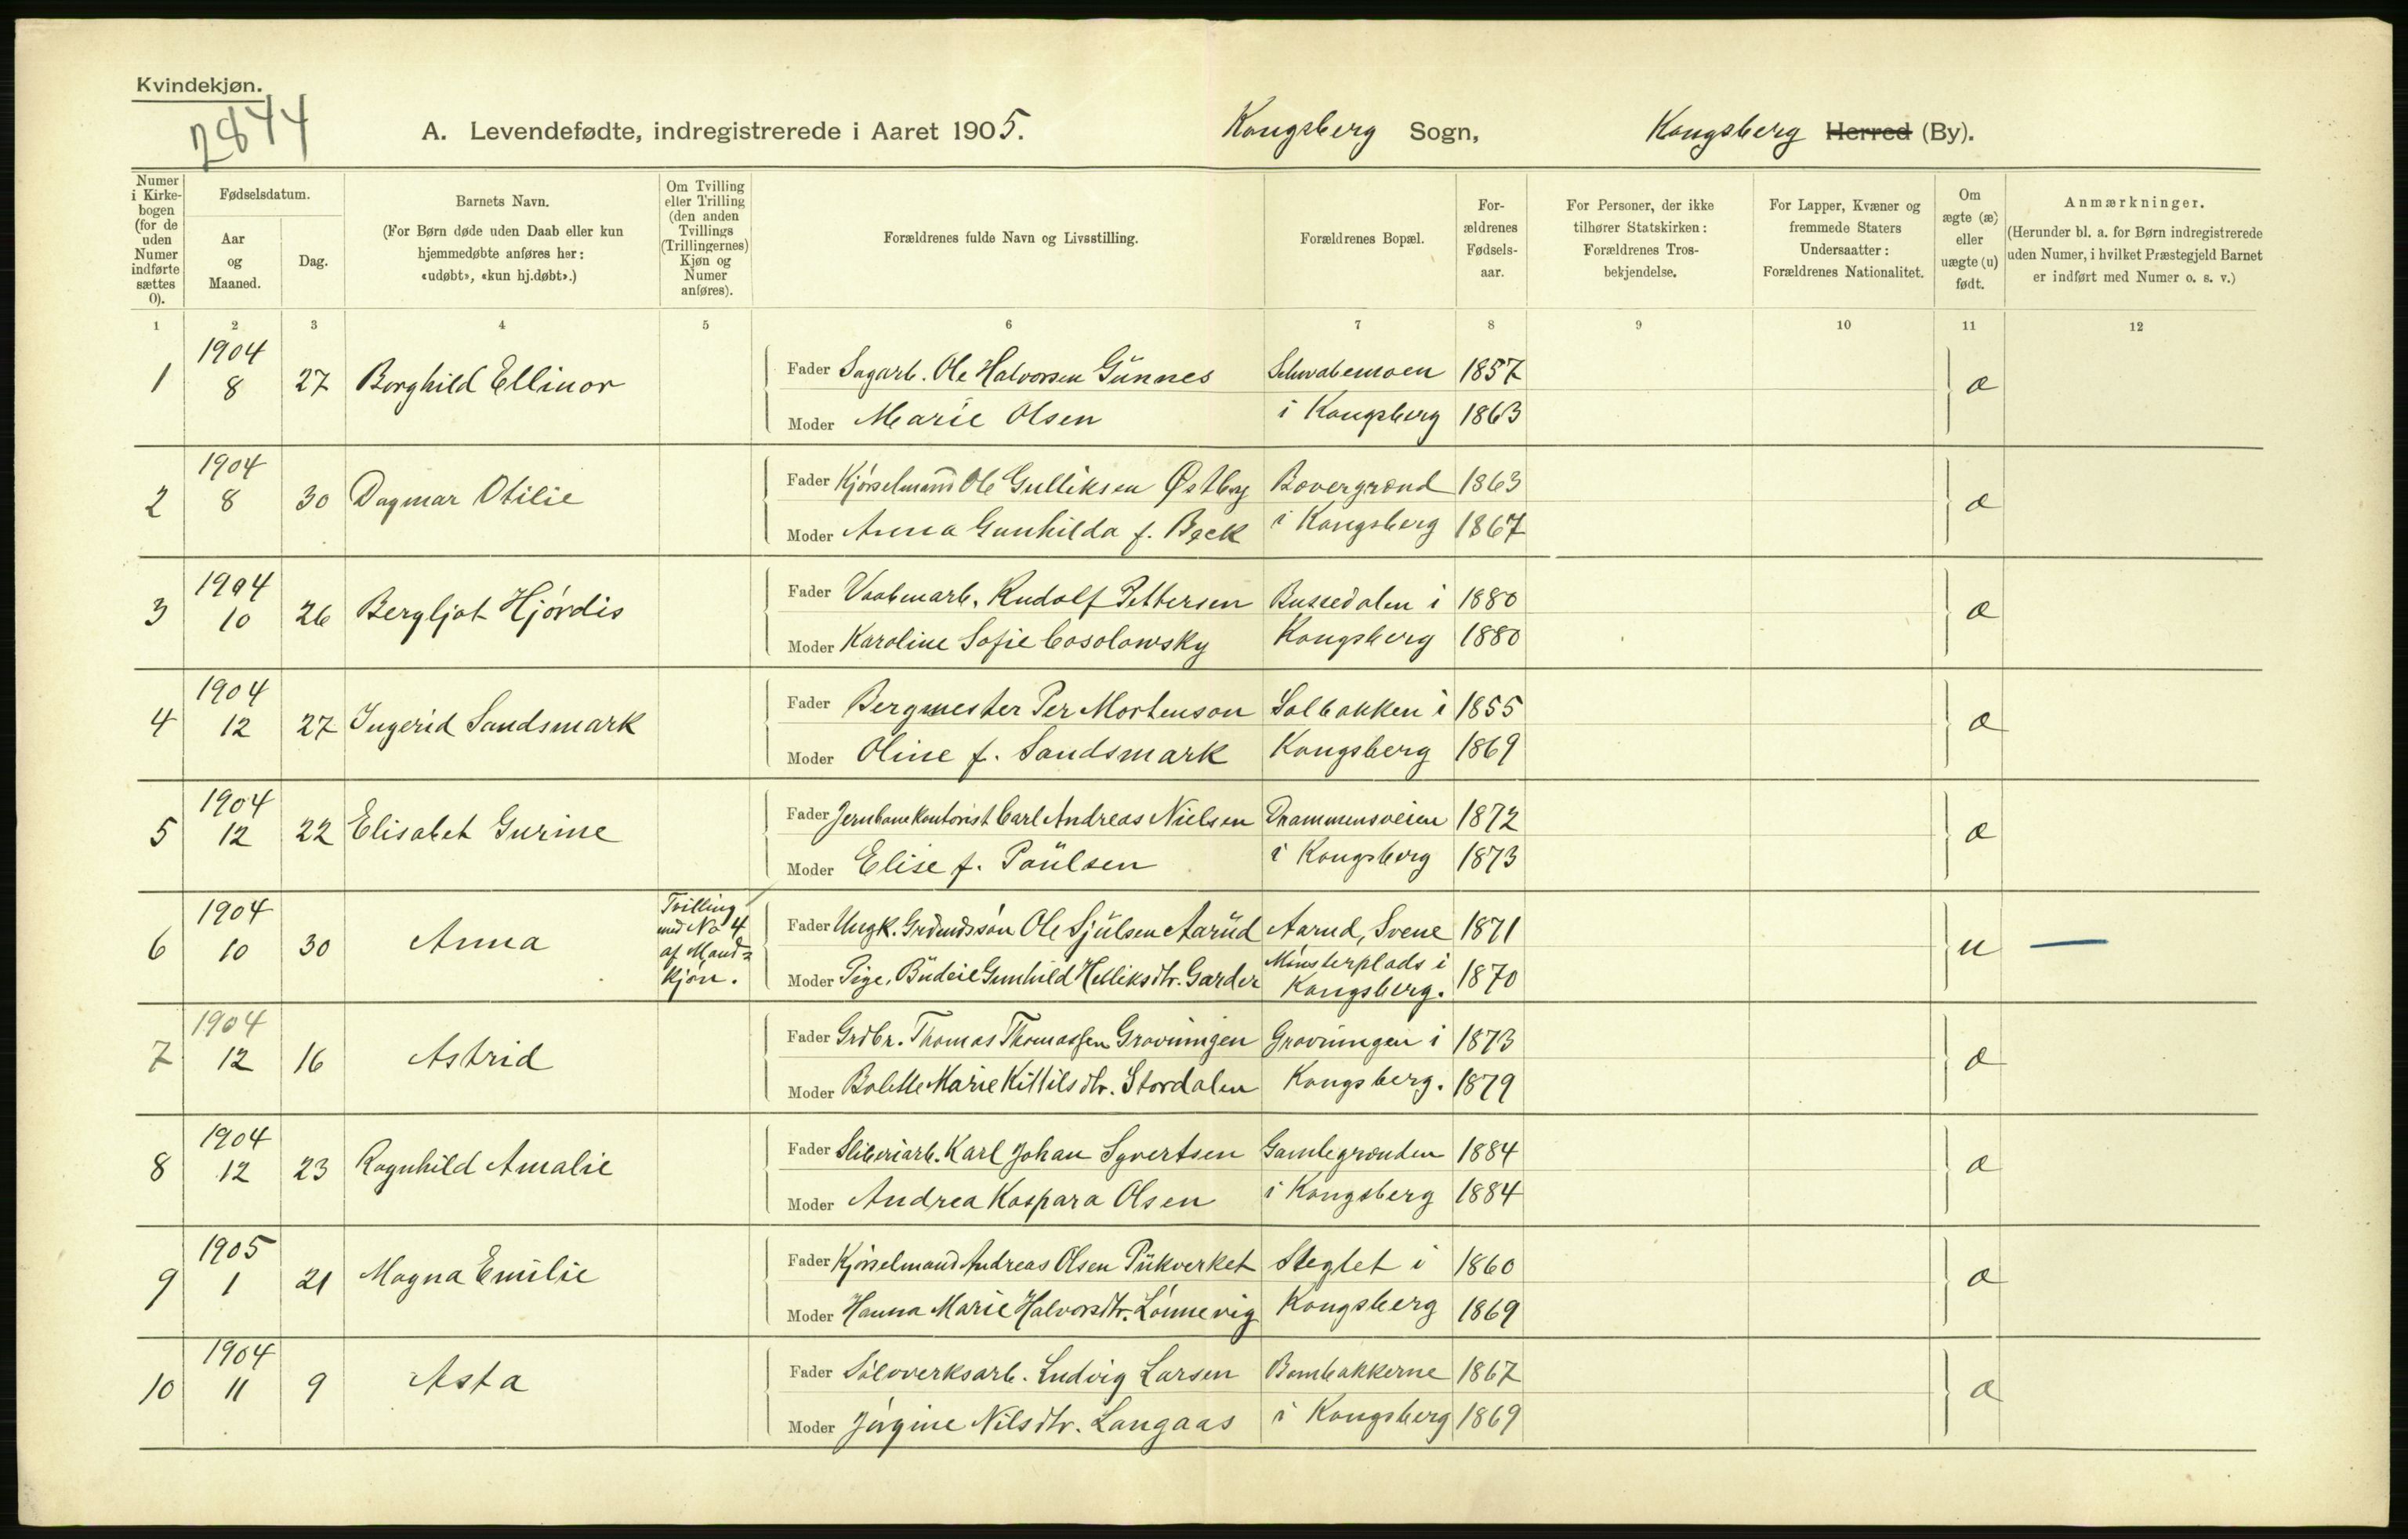 Kvindekjøn.
2844
A. Levendefødte, indregistrerede i Aaret 1905. Kongsberg Sogn, Kongsberg Herred (By).
Numer i Kirkebogen (for de uden Numer indførte sættes 0).
Fødselsdatum.
Aar og Maaned.
Dag.
Barnets Navn.
(For Børn døde uden Daab eller kun hjemmedøbte anføres her: «udøbt», «kun hj.døbt».)
Om Tvilling eller Trilling (den anden Tvillings (Trillingernes) Kjøn og Numer anføres).
Forældrenes fulde Navn og Livsstilling.
Forældrenes Bopæl.
For-ældrenes Fødsels-aar.
For Personer, der ikke tilhører Statskirken: Forældrenes Tros-bekjendelse.
For Lapper, Kvæner og fremmede Staters Undersaatter: Forældrenes Nationalitet.
Om ægte (æ) eller uægte (u) født.
Anmærkninger.
(Herunder bl. a. for Børn indregistrerede uden Numer, i hvilket Præstegjeld Barnet er indført med Numer o. s. v.)
1 2 3 4 5 6 7 8 9 10 11 12
1904
1 8 27 Borghild Ellinor
Fader Sagarb. Ole Halvorsen Gunnes Schwabemoen 1857
Moder Marie Olsen i Kongsberg 1863
æ
1904
2 8 30 Dagmar Otilie
Fader Kjørselmand Ole Gulliksen Østby Bævergrænd 1863
Moder Anna Gunhilda f. Beck i Kongsberg 1867
æ
1904
3 10 26 Bergljot Hjørdis
Fader Vaabenarb. Rudolf Pettersen Bussedalen i 1880
Moder Karoline Sofie Cosolowsky Kongsberg 1880
æ
1904
4 12 27 Ingerid Sandsmark
Fader Bergmester Per Mortenson Solbakken i 1855
Moder Oline f. Sandsmark Kongsberg 1869
æ
1904
5 12 22 Elisabet Gurine
Fader Jernbanekontorist Carl Andreas Nielsen Drammensveien 1872
Moder Elise f. Paulsen i Kongsberg 1873
æ
1904
6 10 30 Anna
Tvilling med No 4 af Mand=kjøn.
Fader Ungk. Grdmdssøn Ole Sjulsen Aarud Aarud, Svene 1871
Moder Pige, Budeie Gunhild Helliksdtr. Garder Mønsterplads i Kongsberg. 1870
u —
1904
7 12 16 Astrid
Fader Grdbr. Thomas Thomassen Grovningen Grovningen i 1873
Moder Bolette Marie Kittilsdtr. Stordalen Kongsberg. 1879
æ
1904
8 12 23 Ragnhild Amalie
Fader Sliberiarb. Karl Johan Syvertsen Gamlegrænden 1884
Moder Andrea Kaspara Olsen i Kongsberg 1884
æ
1905
9 1 21 Magna Emilie
Fader Kjørselmand Andreas Olsen Pukverket Steglet i 1860
Moder Hanna Marie Halvorsdtr. Lønnevig Kongsberg 1869
æ
1904
10 11 9 Asta
Fader Sølvverksarb. Ludvig Larsen Bombakkerne 1867
Moder Jørgine Nilsdtr. Langaas i Kongsberg 1869
æ